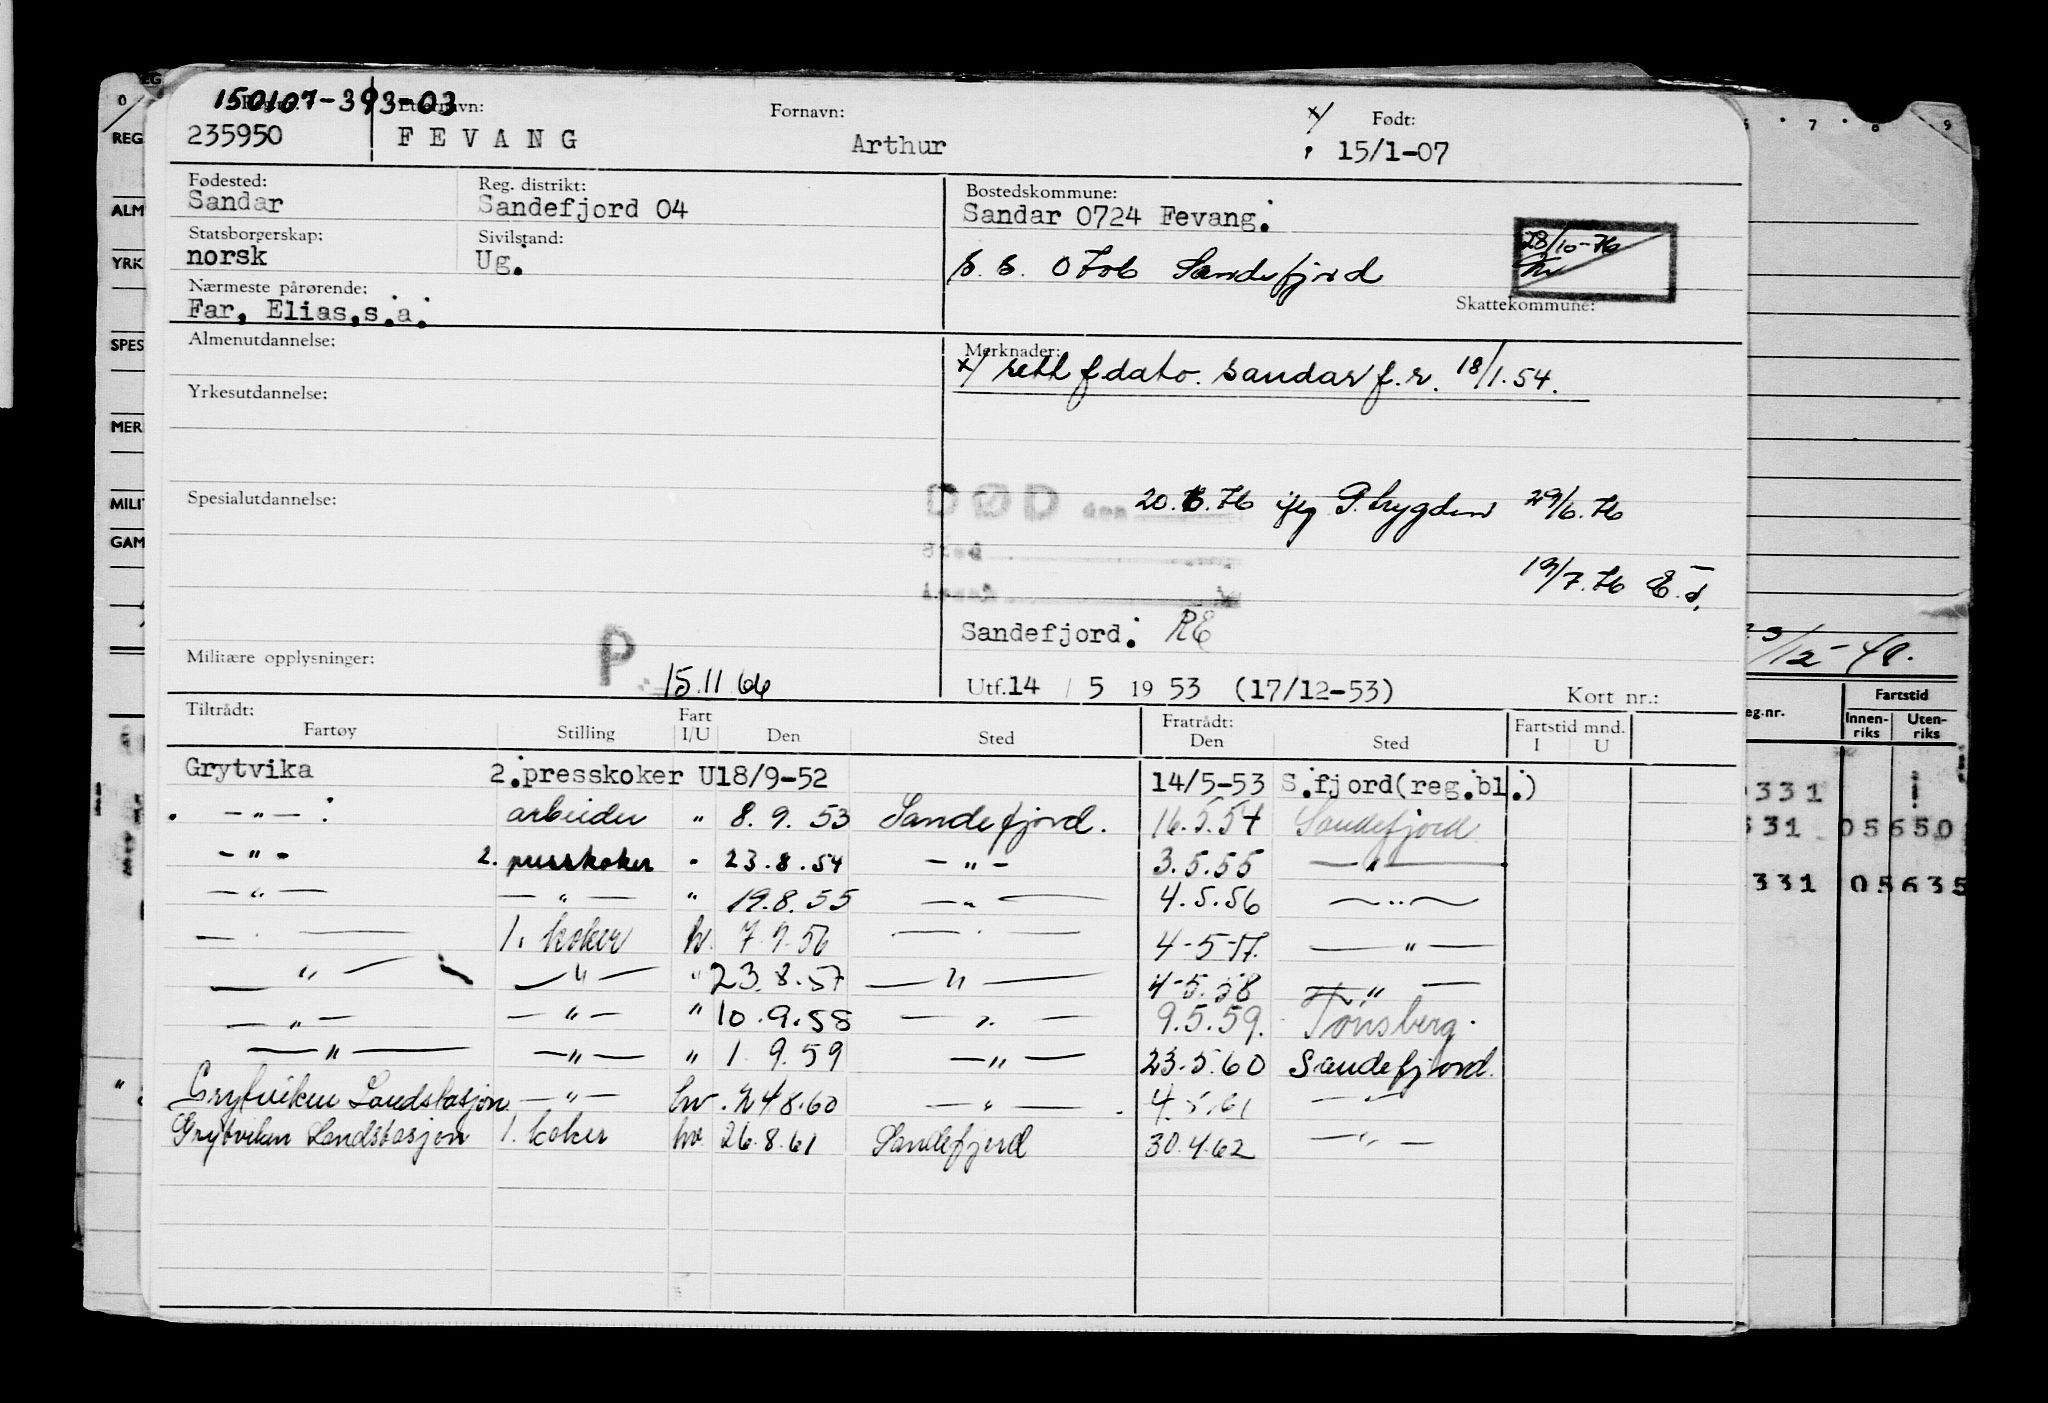 150107-393-03
Reg.nr.: Etternavn: Fornavn: x/ Født:
235950 FEVANG Arthur 15/1-07
Fødested: Reg. distrikt: Bostedskommune:
Sandar Sandefjord 04 Sandar 0724 Fevang.
Statsborgerskap: Sivilstand:
norsk Ug. Sandefjord
28/10-76
Nærmeste pårørende: Skattekommune:
Far, Elias,s.a.
Almenutdannelse: Merknader:
x/ rett f dato. Sandar f.r. 18/1.54.
Yrkesutdannelse:
Spesialutdannelse: DØD den 20.6.76 iflg P.trygden 29/6.76
19/7.76
Sandefjord. RE
Militære opplysninger: P 15.11.66 Utf.14 / 5 1953 (17/12-53) Kort nr.:
Tiltrådt: Fart Fratrådt: Fartstid mnd.
Fartøy Stilling I/U Den Sted Den Sted I U
Grytvika 2.presskoker U 18/9-52 14/5-53 S.fjord(reg.bl.)
- " - arbeider " 8.9.53 Sandefjord. 16.5.54 Sandefjord
- " - 2. presskoker " 23.8.54 - " - 3.5.55 - " -
- " - - " - " 19.8.55 - " - 4.5.56 - " -
- " - 1. koker hv. 7.9.56 - " - 4-5-57. - " -
- " - - " - " 23.8.57 - " - 4-5.58 - " -
- " - - " - " 10.9.58 - " - 9.5.59. Tønsberg.
- " - - " - " 1.9.59 - " - 23.5.60 Sandefjord.
Grytviken Landstasjon - " - hv. 24.8.60 - " - 4.5.61 - " -
Grytviken Landstasjon 1. koker hv. 26.8.61 Sandefjord 30.4.62 - " -
REG
ALM
YRK
SPES
MER
MILI
GAM
7 8 9
/12-48.
eg.nr. Fartstid
Innen-riks Uten-riks
331
331 05650
331 05635